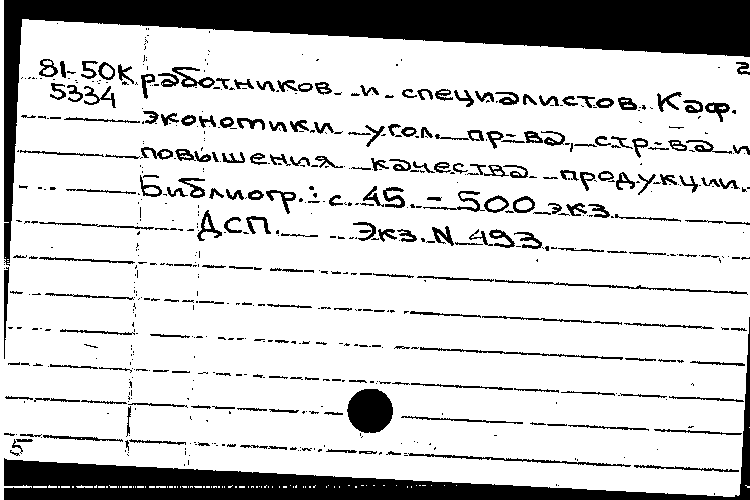 2
81-50К работников и специалистов. Каф.
5334 экономики угол. пр-ва, стр-ва и
повышения качества продукции.
Библиогр.: с. 45. - 500 экз.
ДСП. Экз. N 493.
5